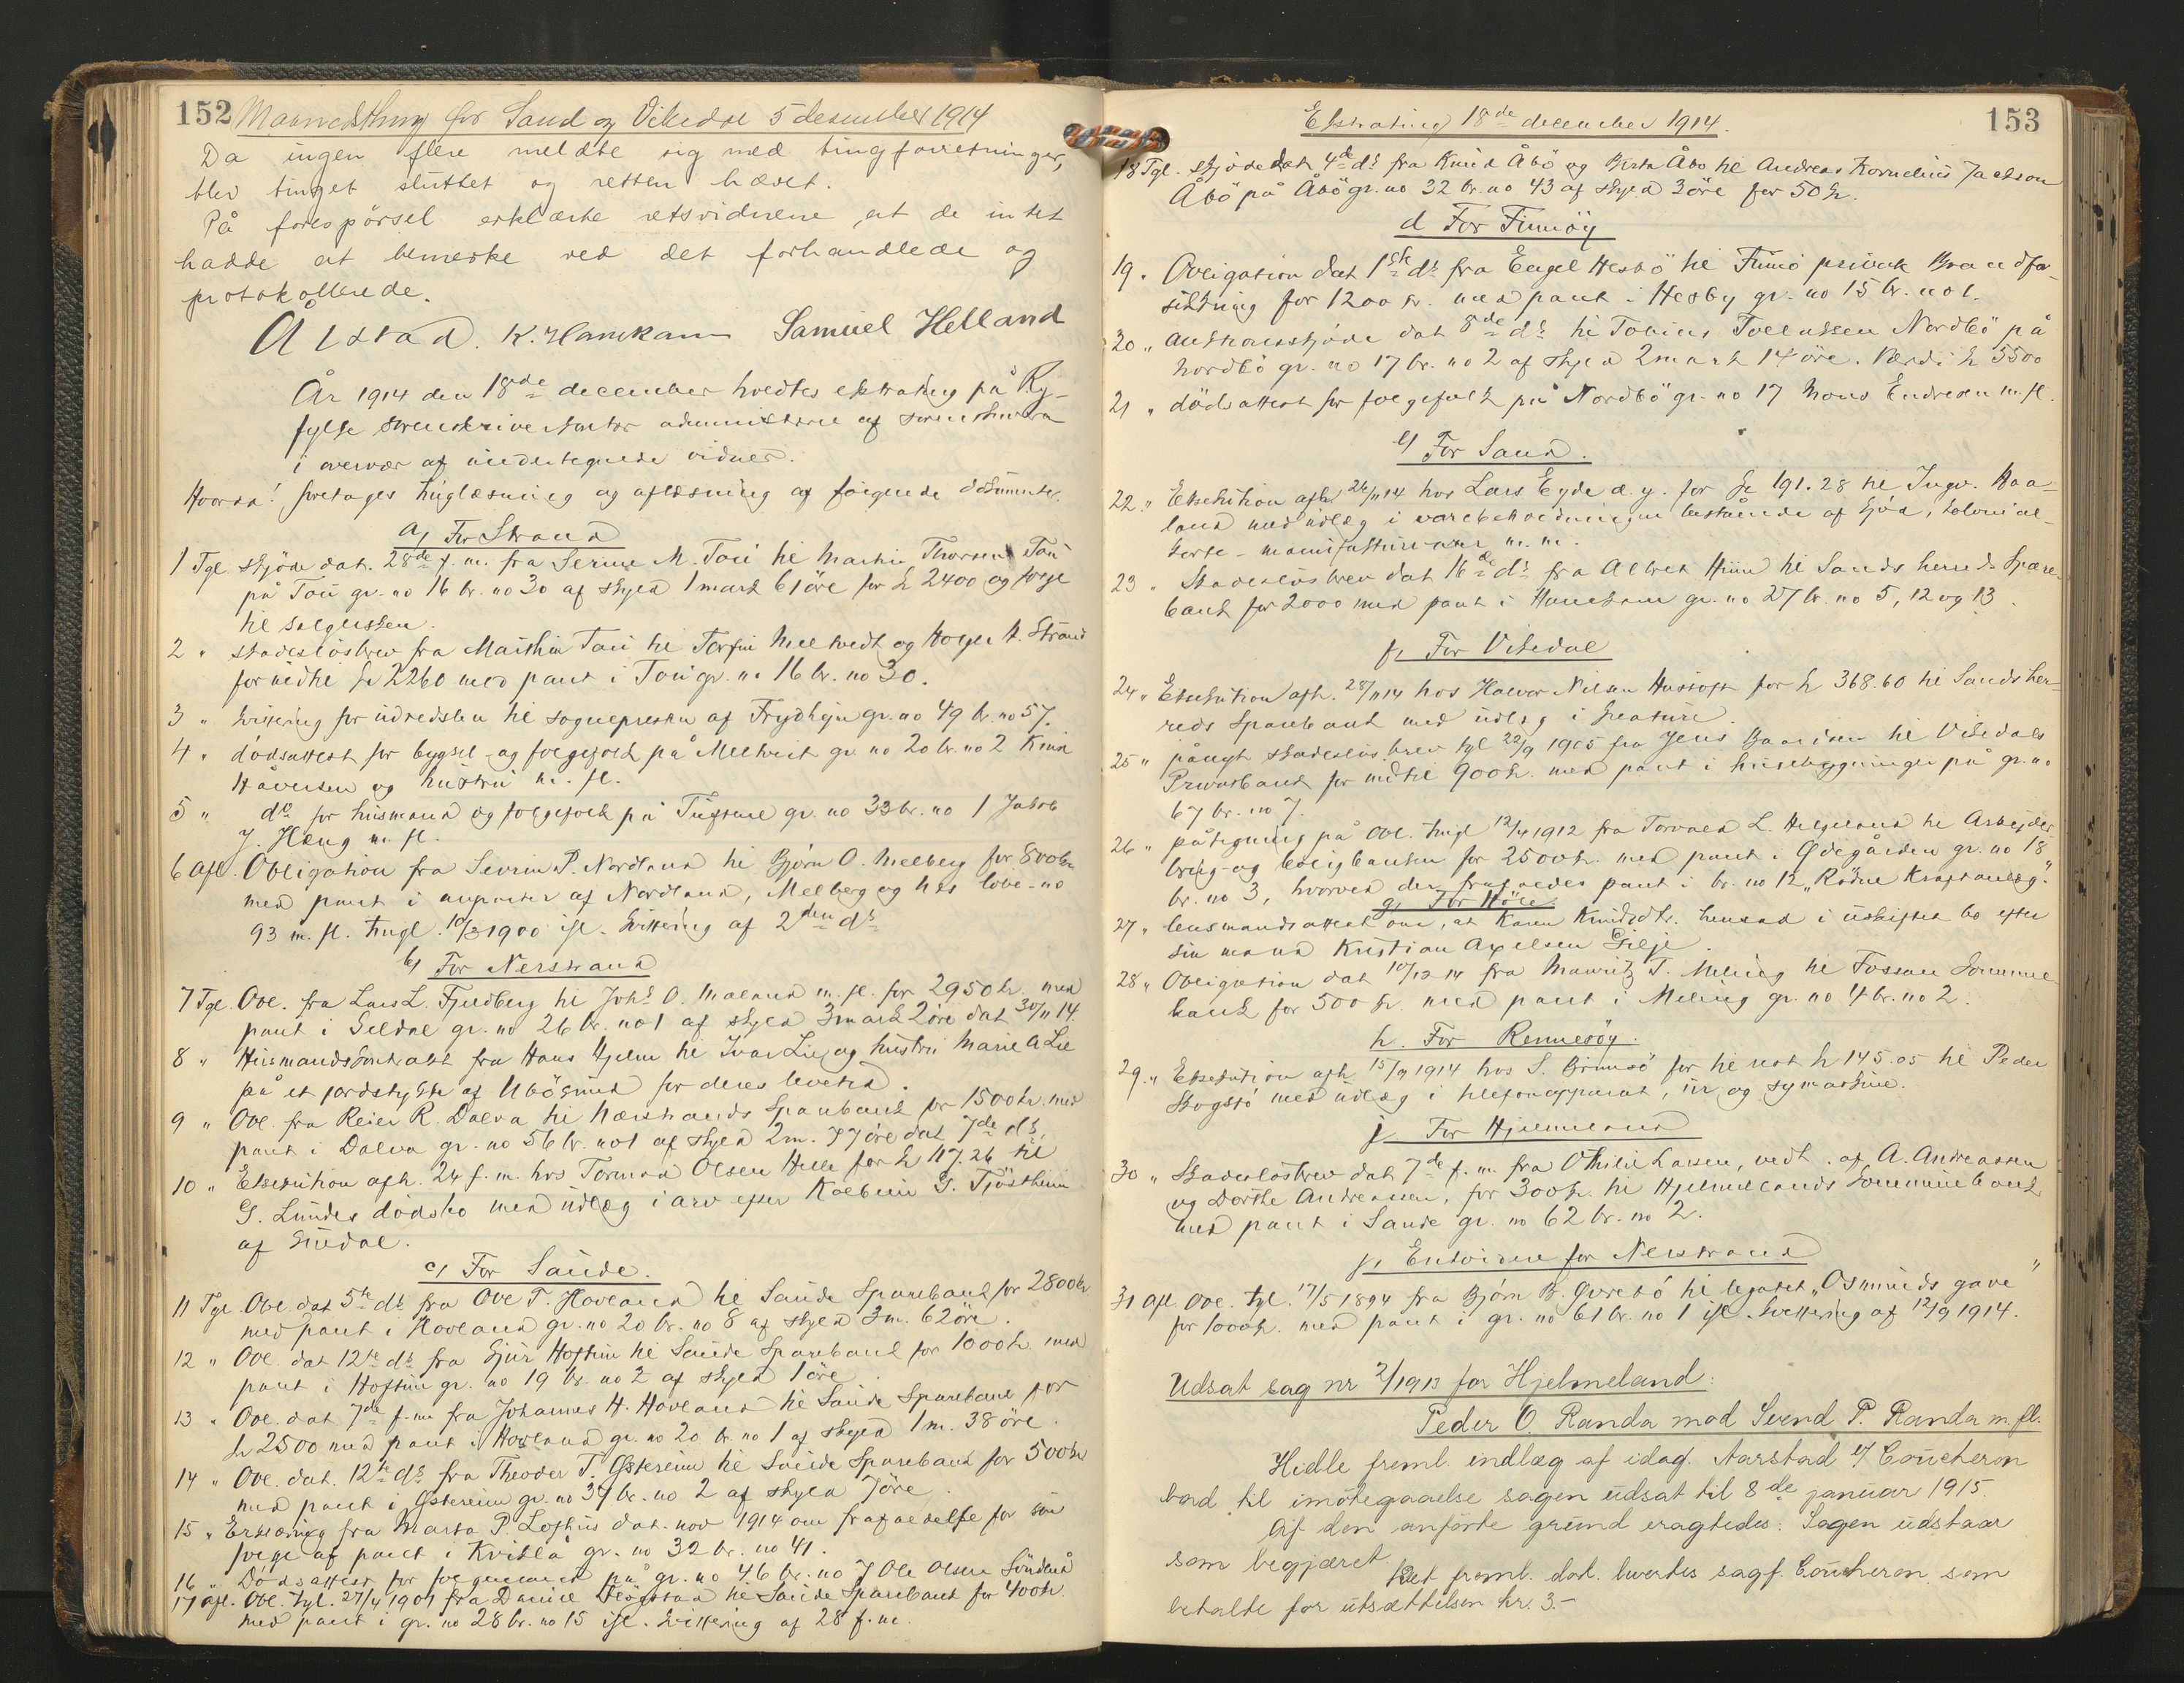 152 Maanedsthing for Sand og Vikedal 5 desember 1914
Da ingen flere meldte sig med tingforretninger,
blev tinget sluttet og retten hævet.
På forespörsel erklærte retsvidnene at de intet
hadde at bemerke ved det forhandlede og
protokollerede.
Ålstad. K. Hamkam Samuel Helland
År 1914 den 18de december holdtes ekstrating på Ry-
fylke sorenskriverkontor administreret af sorenskriveren
i overvær af undertegnede vidner.
Hvorda! foretoges tinglæsning og aflæsning af følgende dokumenter.
a) For Strand
1 Tgl. skjöde dat. 28de f. m. fra Serine M. Tou til Martin Thorsen Tou
på Tou gr. no 16 br. no 30 af skyld 1 mark 61 öre for kr 2400 og folge
til selgersken.
2 " skadeslösbrev fra Marthin Tou til Torfin Meltvedt og Holger A. Strand
for indtil kr 2260 med pant i Tou gr. no 16 br. no 30.
3 " kvittering for udredslen til sognepresten af Frydheim gr. no 49 br. no 57.
4 " dödsattest for bygsel- og folgefolk på Meltveit gr no 20 br. no 2 Knud
Håversen og hustru m. fl.
5 " do for husmand og folgefolk på Tungland gr. no 33 br. no 1 Jakob
J. Haug m. fl.
6 Afl. Obligation fra Sevrin P. Nordland til Björn O. Melberg for 800 kr
med pant i anparter af Nordland, Melberg og Hes löbe-no
93 m. fl. tingl. 10/3 1900 ifl. kvittering af 2den ds
b) For Nerstrand
7 Tgl. Obl. fra Lars L. Fjeldberg til Johs O. Maeland m. fl. for 2950 kr. med
pant i Seldal gr. no 26 br. no 1 af skyld 3 mark 2 öre dat 30/11 14.
8 " Husmandskontrakt fra Hans Hjelm til Ivar Lie og hustru Marie A Lie
på et jordstykke af Ubösund for deres levetid.
9 " Obl. fra Reier R. Dalva til Nærstrands Sparebank for 1500 kr. med
pant i Dalva gr. no 56 br. no 1 af skyld 2 m. 77 öre dat 7de ds.
10 " Eksekution afh. 24 f. m. hos Tormod Olsen Helle for kr 117.26 til
G. Lundes dödsbo med udlæg i arv efter Kolbein G. Tjöstheim
af Suldal.
c) For Saude.
11 Tgl. Obl. dat 5te ds fra Ove T. Hovland til Saude Sparebank for 2800 kr
med pant i Hovland gr. no 20 br. no 8 af skyld 3 m. 62 öre.
12 " Obl. dat 12te ds fra Sjur Hoftun til Saude Sparebank for 1000 kr. med
pant i Hoftun gr. no 19 br. no 2 af skyld 1 öre.
13 " Obl. dat 7de f. m. fra Johannes H. Hovland til Saude Sparebank for
kr 2500 med pant i Hovland gr. no 20 br. no 1 af skyld 1 m. 38 öre.
14 " Obl. dat. 12te ds fra Theodor T. Østereim til Saude Sparebank for 500 kr
med pant i Østereim gr. no 37 br. no 2 af skyld 7 öre.
15 " Erklæring fra Marta P. Lofthus dat. nov 1914 om frafaldelse for sin
folge af pant i Kvitlå gr. no 32 br. no 41.
16 " Dödsattest for folgemand på gr. no 46 br. no 7 Ole Olsen Söndenå
17 Afl. Obl. tgl. 27/4 1901 fra Daniel Flögstad til Saude Sparebank for 400 kr.
med pant i gr. no 28 br. no 15 ifl. kvittering af 28 f. m.
Ekstrating 18de december 1914. 153
18 Tgl. skjöde dat 4de ds fra Knud Åbö og Berta Åbö til Andreas Kornelius Jacobson
Åbö på Åbö gr. no 32 br. no 43 af skyld 3 öre for 50 kr.
d For Finnöy
19. Obligation dat 1ste ds fra Engel Hesbö til Finnö private Brandfor-
sikring for 1200 kr. med pant i Hesby gr. no 15 br. no 1.
20 " auktionsskjöde dat 8de ds til Tobias Tollaksen Nordbö på
Nordbö gr. no 17 br. no 2 af skyld 2 mark 14 öre. Værdi kr 5500
21 " dödsattest for folgefolk på Nordbö gr. no 17 Mons Endresen m. fl.
e) For Sand.
22 " Eksekution afh. 26/11 14 hos Lars Eyde d. y. for kr 191.28 til Ingv. Haa-
land med udlæg i varebeholdningen bestående af kjöd, kolonial-
korte- manufakturvarer m. m.
23 " Skadeslösbrev dat 16de ds fra Albret Hiim til Sands herreds Spare-
bank for 2000 med pant i Hamkam gr. no 27 br. no 5, 12 og 13.
f) For Vikedal
24 " Eksekution afh. 28/11 14 hos Halvor Nilsen Hustoft for kr 368.60 til Sands her-
reds Sparebank med udlæg i kreature.
25 " påtegn. skadeslösbrev tgl 22/9 1905 fra Jens Baardsen til Vikedals
Privatbank for indtil 900 kr. med pant i husebygninger på gr. no
67 br. no 7.
26 " påtegning på Obl. tingl 12/4 1912 fra Torvald L. Helgeland til Arbejder-
brug- og boligbanken for 2500 kr. med pant i Ødegården gr. no 18
br. no 3, hvorved der frafaldes pant i br. no 12 „Rödne Kraftanlæg“.
g) For Höle
27 " lensmandsattest om, at Karen Knudsdtr. hensad i uskiftet bo efter
sin mand Kristian Axelsen Gilje.
28 " Obligation dat 10/12 14 fra Mauritz T. Meling til Fossan Sommune
bank for 500 kr. med pant i Meling gr. no 4 br. no 2.
h. For Rennesöy.
29. " Eksekution afh 15/9 1914 hos S. Brimsö for til rest kr 145.05 til Peder
Skogstö med udlæg i telefonapparat, ur og symaskine.
j. For Hjelmeland
30 " Skadeslösbrev dat 7de f. m. fra Othilie Larsen, vedt. af A. Andreassen
og Dorthe Andreassen, for 300 kr. til Hjelmelands Kommunebank
med pant i Sande gr. no 62 br. no 2.
j) Endvidere for Nerstrand
31 afl. Obl. tgl. 17/5 1894 fra Björn B. Qvretö til legatet „Osmunds gave“
for 1000 kr. med pant i gr. no 61 br. no 1 ifl. kvittering af 12/9 1914.
Udsat sag nr 2/1913 for Hjelmeland:
Peder O. Randa mod Svend P. Randa m. fl.
Hidle freml. indlæg af idag. Aarstad v/ Coucheron
bad til imötegaaelse sagen udsat til 8de januar 1915.
Af den anförte grund eragtedes: Sagen udstaar
som begjæret.
Det freml. dok. leverdes sagf. Coucheron som
betalte for utsættelsen kr. 3.-